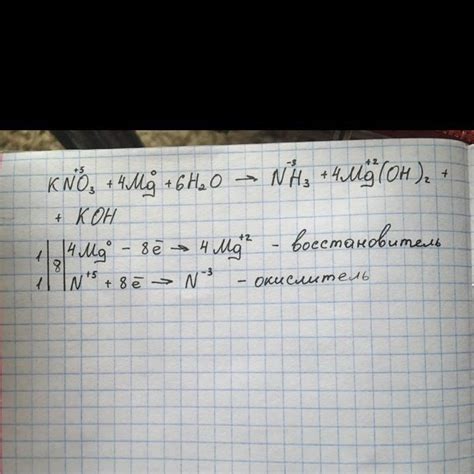 KN⁺⁵O₃ + 4Mg⁰ + 6H₂O → N⁻³H₃ + 4Mg⁺²(OH)₂ +
+ KOH
1 | 8 | 4Mg⁰ - 8ē → 4Mg⁺² - восстановитель
1 | | N⁺⁵ + 8ē → N⁻³ - окислитель